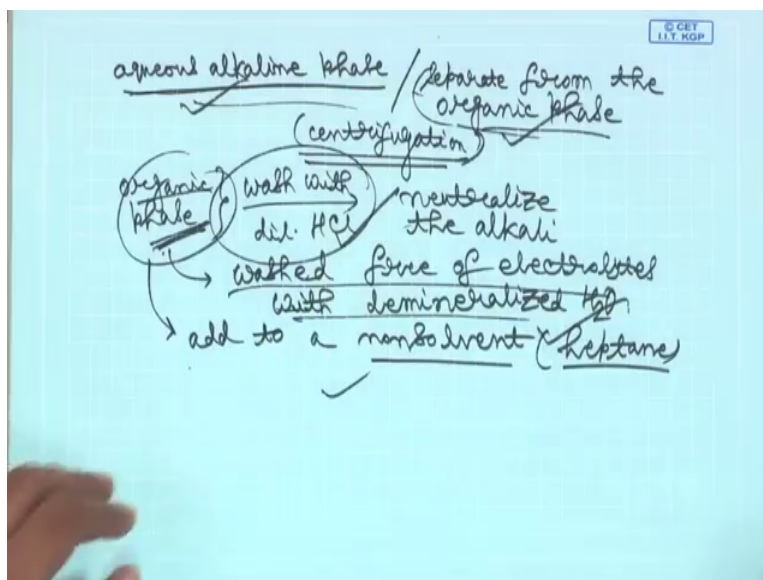 © CET
I.I.T. KGP
aqueous alkaline phase / (separate from the
organic phase
(centrifugation)
organic wash with neutralize
phase dil. HCl the alkali
washed free of electrolytes
with demineralized H2O
add to a nonsolvent (heptane)